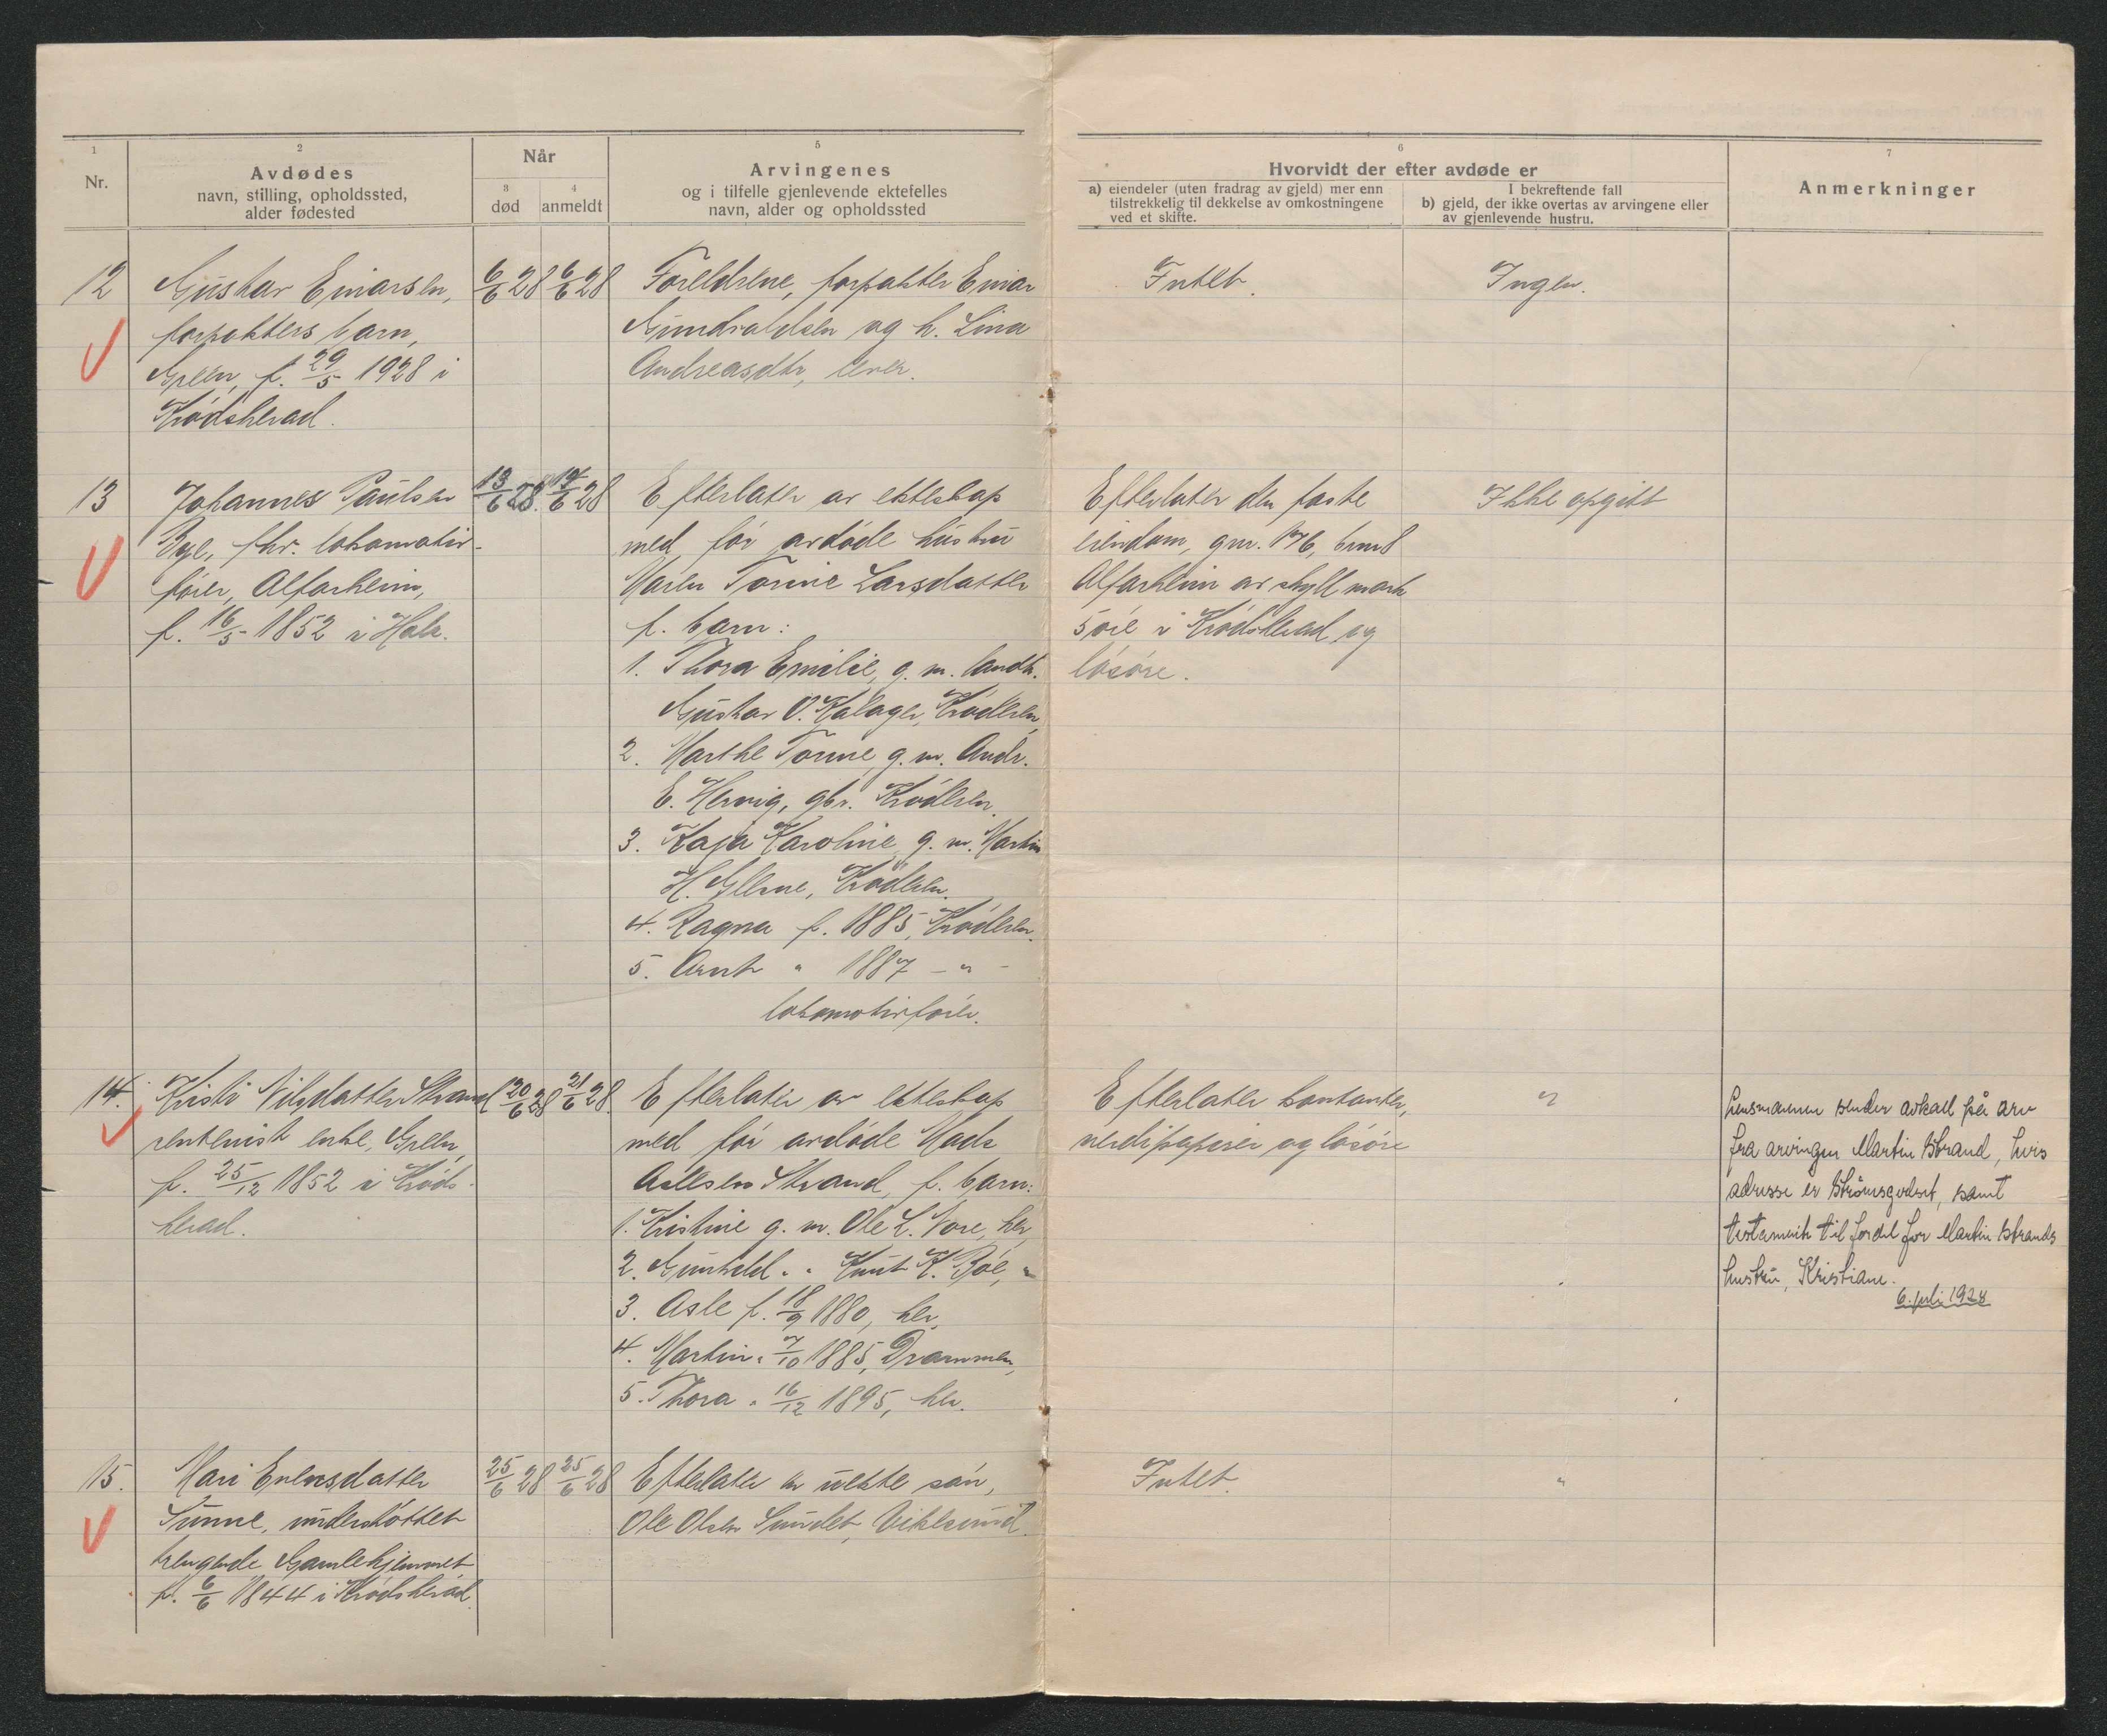 1
Nr.
2
Avdødes
navn, stilling, opholdssted,
alder fødested
Når
3
død
4
anmeldt
5
Arvingenes
og i tilfelle gjenlevende ektefelles
navn, alder og opholdssted
6
Hvorvidt der efter avdøde er
a) eiendeler (uten fradrag av gjeld) mer enn
tilstrekkelig til dekkelse av omkostningene
ved et skifte.
I bekreftende fall
b) gjeld, der ikke overtas av arvingene eller
av gjenlevende hustru.
7
Anmerkninger
12
Gustav Einarsen,
forpakters barn,
Green, f. 29/5 1928 i
Krødsherad.
6/6 28
6/6 28
Foreldrene, forpakter Einar
Gundvaldsen og h. Lina
Andreasdtr, lever.
Intet.
Ingen.
13
Johannes Paulsen
Bye, fhr. lokomotiv-
fører, Alfarheim,
f. 16/5 1852 i Hole.
13/6 28.
14/6 28
Efterlater av ekteskap
med før avdøde hustru
Maren Torine Larsdatter
f. barn:
1. Thora Emilie, g. m. landh.
Gustav O. Kalager, Krødern,
2. Marthe Torine, g. m. Andr.
E. Hervig, gbr. Krødern.
3. Kaja Karoline, g. m. Martin
H. Glerne, Krødern.
4. Ragna f. 1885, Krødern.
5. Arnt " 1887 - " -
lokomotivfører.
Efterlater den faste
eiendom, gnr. 176, brnr 8
Alfarheim av skyll mark
5 øre i Krødsherad og
løsøre.
Ikke opgitt
14.
Kristi Nilsdatter Strand
rentenist enke, Green,
f. 25/12 1852 i Krøds-
herad.
20/6 28
21/6 28.
Efterlater av ekteskap
med før avdøde Mads
Aslesen Strand, f. barn:
1. Kristine g. m. Ole L. Nore, her,
2. Gunhild " " Knut K. Bøe, "
3. Asle f. 18/9 1880, her,
4. Martin " 7/10 1885, Drammen,
5. Thora " 16/12 1895, her.
Efterlater kontanter,
verdipapirer og løsøre
"
Lensmannen sender avkall på arv
fra arvingen Martin Strand, hvis
adresse er Strømsgodset, samt
testamente til fordel for Martin Strands
hustru, Kristiane.
6. juli 1928
15.
Mari Evensdatter
Sunne, understøttet
trengende, Gamlehjemmet,
f. 6/6 1844 i Krødsherad.
25/6 28
25/6 28
Efterlater en uekte søn,
Ole Olsen Sundet, Vikersund.
Intet.
"